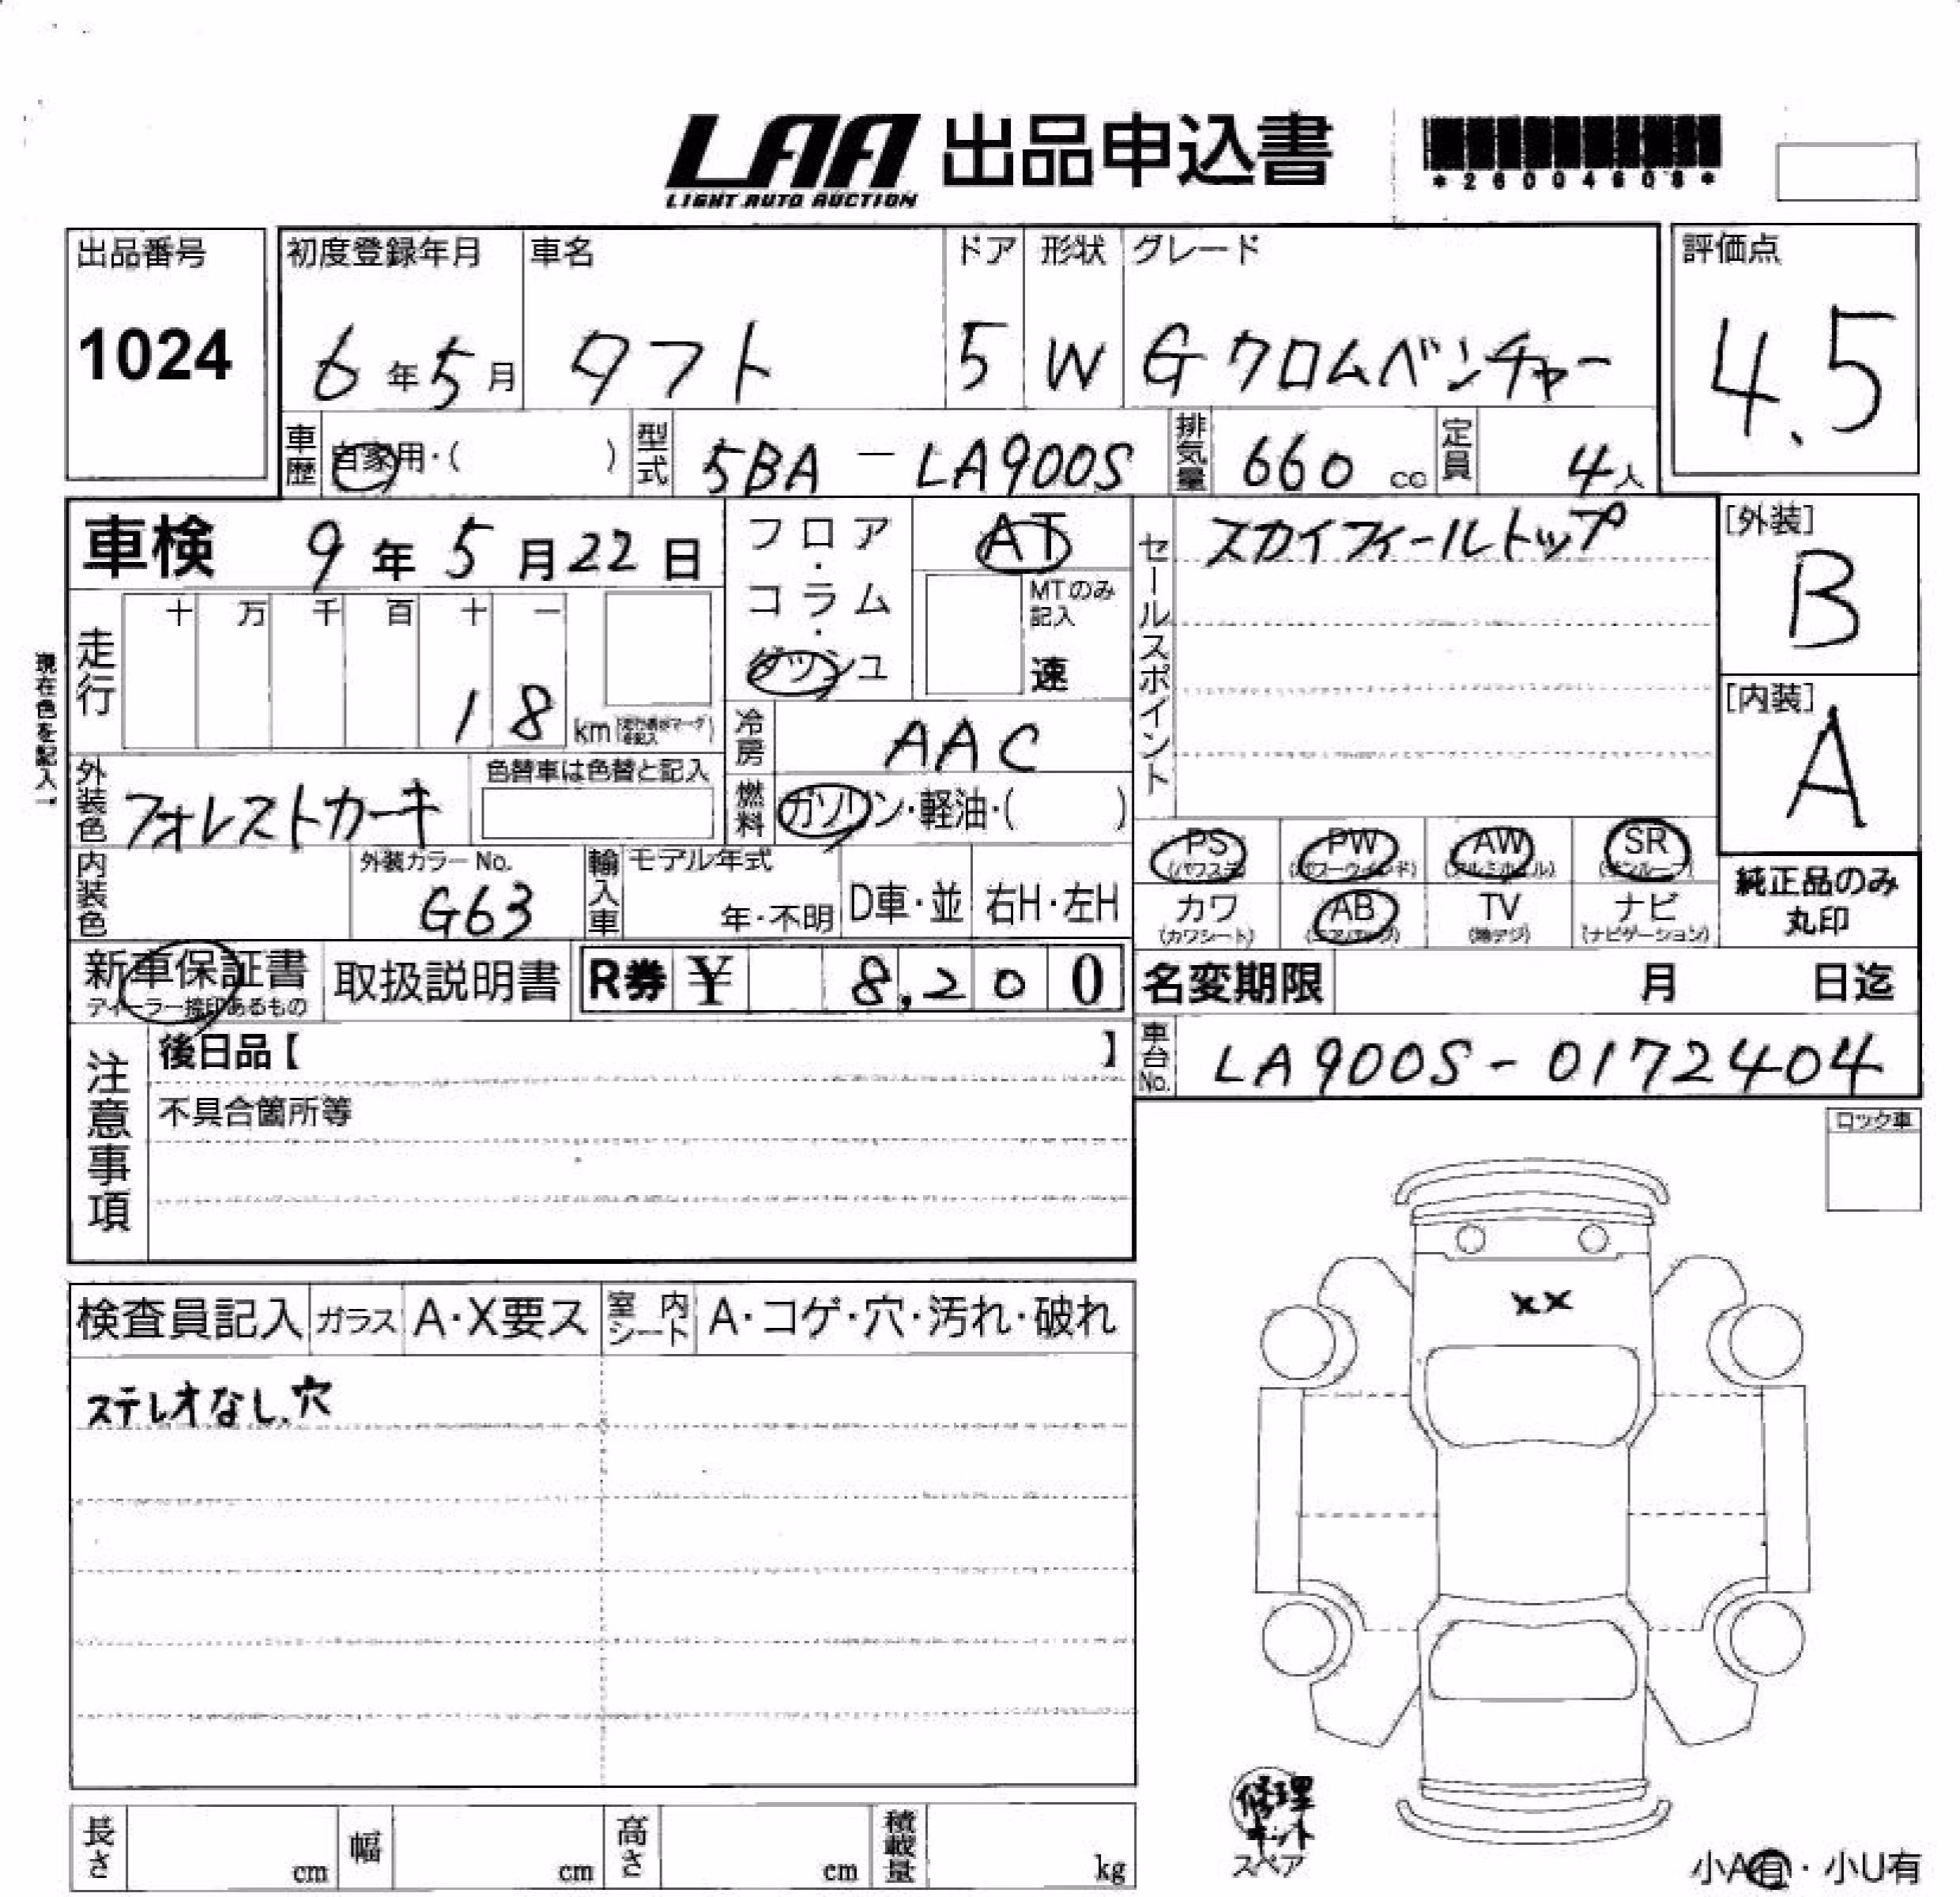 LAA 出品申込書
LIGHT AUTO AUCTION
*26004608*
出品番号
1024
初度登録年月
6年5月
車名
タフト
ドア
5
形状
W
グレード
Gクロムベンチャー
評価点
4.5
車歴 自家用・( )
型式 5BA-LA900S
排気量 660 cc
定員 4人
車検 9年5月22日
フロア・コラム・ダッシュ
AT
MTのみ記入
速
セールスポイント
スカイフィールトップ
[外装]
B
[内装]
A
現在色を記入
走行
十 万 千 百 十 一
18 km
冷房 AAC
燃料 ガソリン・軽油・( )
外装色 フォレストカーキ
色替車は色替と記入
内装色
外装カラーNo.
G63
輸入車
モデル年式
年・不明
D車・並
右H・左H
PS
(パワステ)
PW
(パワーウインド)
AW
(アルミホイール)
SR
(サンルーフ)
カワ
(カワシート)
AB
(エアバッグ)
TV
(地デジ)
ナビ
(ナビゲーション)
純正品のみ
丸印
新車保証書
ディーラー捺印あるもの
取扱説明書
R券 ¥ 8,200
名変期限 月 日迄
車台No. LA900S-0172404
注意事項
後日品【 】
不具合箇所等
ロック車
検査員記入
ガラス A・X要ス
室内シート A・コゲ・穴・汚れ・破れ
ステレオなし、穴
XX
修理
キット
スペア
長さ cm
幅 cm
高さ cm
積載量 kg
小A有・小U有